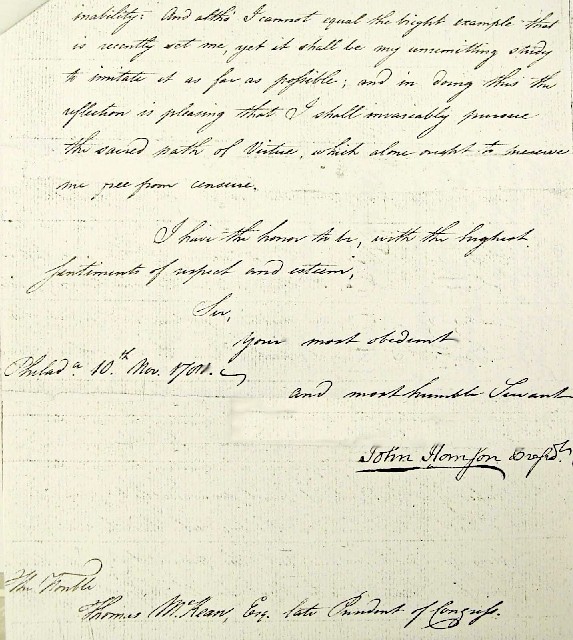 inability: And altho' I cannot equal the bright example that
is recently set me, yet it shall be my unremitting study
to imitate it as far as possible; and in doing this the
reflection is pleasing that I shall invariably pursue
the sacred path of Virtue, which alone ought to preserve
me free from censure.
I have the honor to be, with the highest
sentiments of respect and esteem,
Sir,
your most obedient
Philada. 10th. Nov. 1781.
and most humble Servant
John Hanson Presidt.
The Honble
Thomas McKean, Esq. late President of Congress.